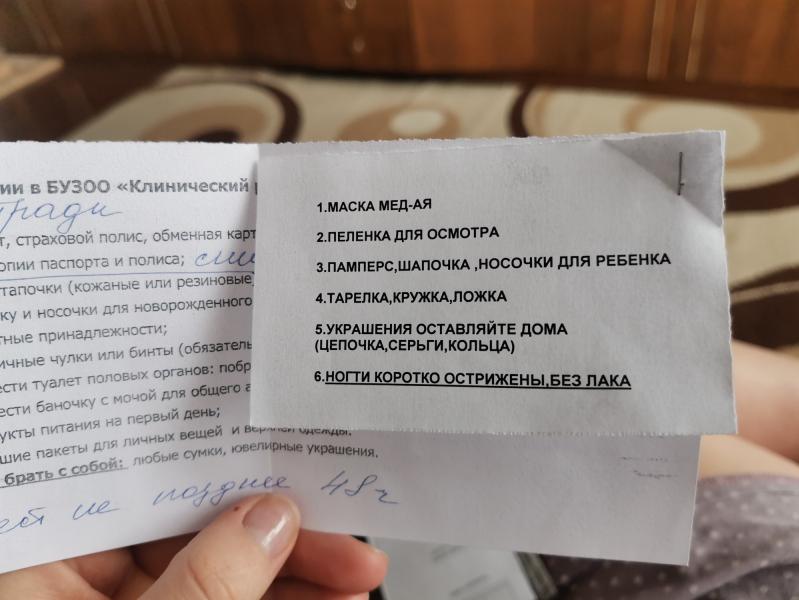 ии в БУЗОО «Клинический
тради
т, страховой полис, обменная карт
опии паспорта и полиса;
тапочки (кожаные или резиновые)
ку и носочки для новорожденного
тные принадлежности;
ичные чулки или бинты (обязатель
ести туалет половых органов: побр
ести баночку с мочой для общего а
укты питания на первый день;
шие пакеты для личных вещей и верхней одежды.
брать с собой: любые сумки, ювелирные украшения.
не позднее 48ч
1.МАСКА МЕД-АЯ
2.ПЕЛЕНКА ДЛЯ ОСМОТРА
3.ПАМПЕРС,ШАПОЧКА ,НОСОЧКИ ДЛЯ РЕБЕНКА
4.ТАРЕЛКА,КРУЖКА,ЛОЖКА
5.УКРАШЕНИЯ ОСТАВЛЯЙТЕ ДОМА
(ЦЕПОЧКА,СЕРЬГИ,КОЛЬЦА)
6.НОГТИ КОРОТКО ОСТРИЖЕНЫ,БЕЗ ЛАКА